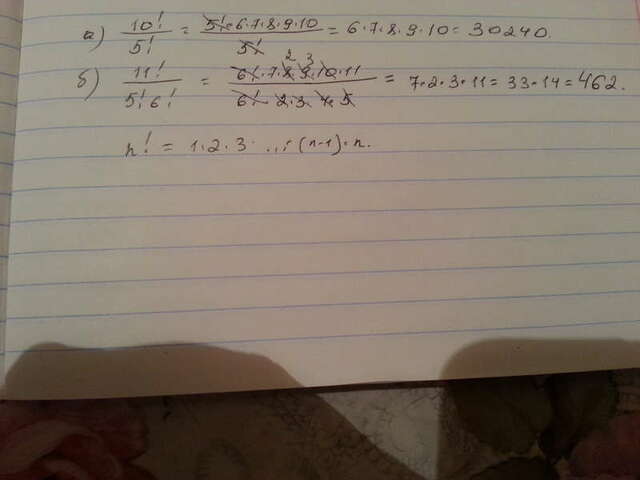 а) 10!/5! = 5!·6·7·8·9·10/5! = 6·7·8·9·10 = 30240.
б) 11!/5!6! = 6!·7·8·9·10·11/6!·2·3·4·5 = 7·2·3·11 = 33·14 = 462.
n! = 1·2·3· ...·(n-1)·n.